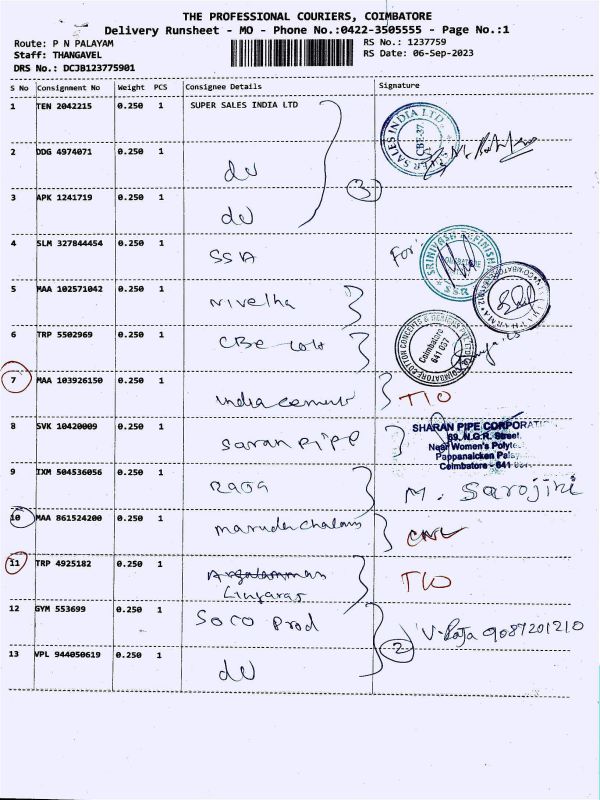 THE PROFESSIONAL COURIERS, COIMBATORE
Delivery Runsheet - MO - Phone No.:0422-3505555 - Page No.:1
Route: P N PALAYAM
RS No.: 1237759
Staff: THANGAVEL
RS Date: 06-Sep-2023
DRS No.: DCJB123775901
S No Consignment No Weight PCS Consignee Details Signature
1 TEN 2042215 0.250 1 SUPER SALES INDIA LTD
SUPER SALES INDIA LTD. CBE-37
2 DDG 4974071 0.250 1 do
3
3 APK 1241719 0.250 1 do
4 SLM 327844454 0.250 1 SSA For
5 MAA 102571042 0.250 1 Nivetha
6 TRP 5502969 0.250 1 CBE
Coimbatore 641 037
7 MAA 103926150 0.250 1 India cement T10
8 SVK 10420009 0.250 1 Saran pipe
SHARAN PIPE CORPORATI
69, N.G.R. Street,
Near Women's Polyte
Pappanaicken Palay
Coimbatore - 641
9 IXM 504536056 0.250 1 Raja M. Sarojini
10 MAA 861524200 0.250 1
11 TRP 4925182 0.250 1 T10
12 GYM 553699 0.250 1 Soco Prod V. Raja 9087201210
2
13 VPL 944050619 0.250 1 do